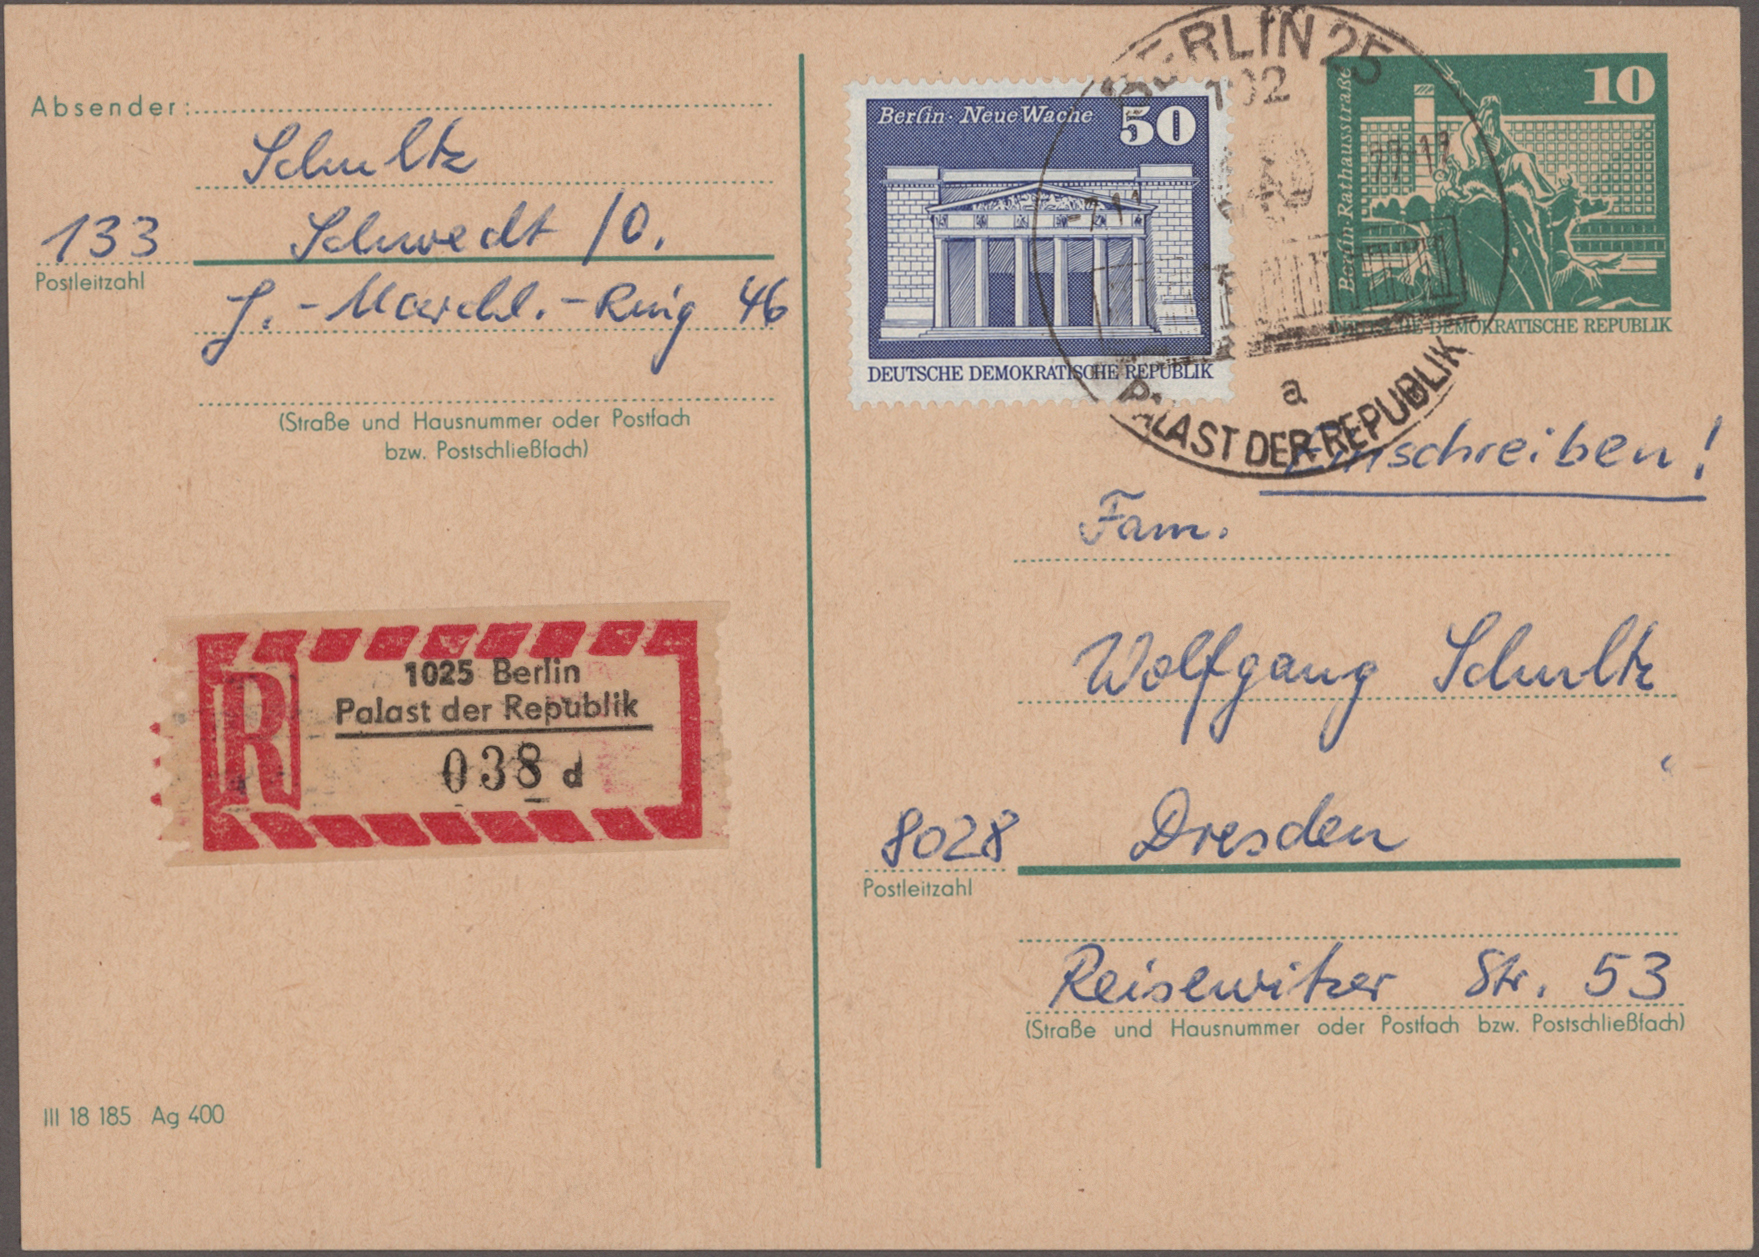 Absender:
Schultz
133 Schwedt /O.
Postleitzahl
J.-Marchl.-Ring 46
(Straße und Hausnummer oder Postfach
bzw. Postschließfach)
R
1025 Berlin
Palast der Republik
038 d
III 18 185 Ag 400
Berlin · Neue Wache 50
DEUTSCHE DEMOKRATISCHE REPUBLIK
BERLIN 25
102
77-17
a
PALAST DER REPUBLIK
10
Berlin · Rathausstraße
DEUTSCHE DEMOKRATISCHE REPUBLIK
Einschreiben!
Fam.
Wolfgang Schultz
8028 Dresden
Postleitzahl
Reisewitzer Str. 53
(Straße und Hausnummer oder Postfach bzw. Postschließfach)